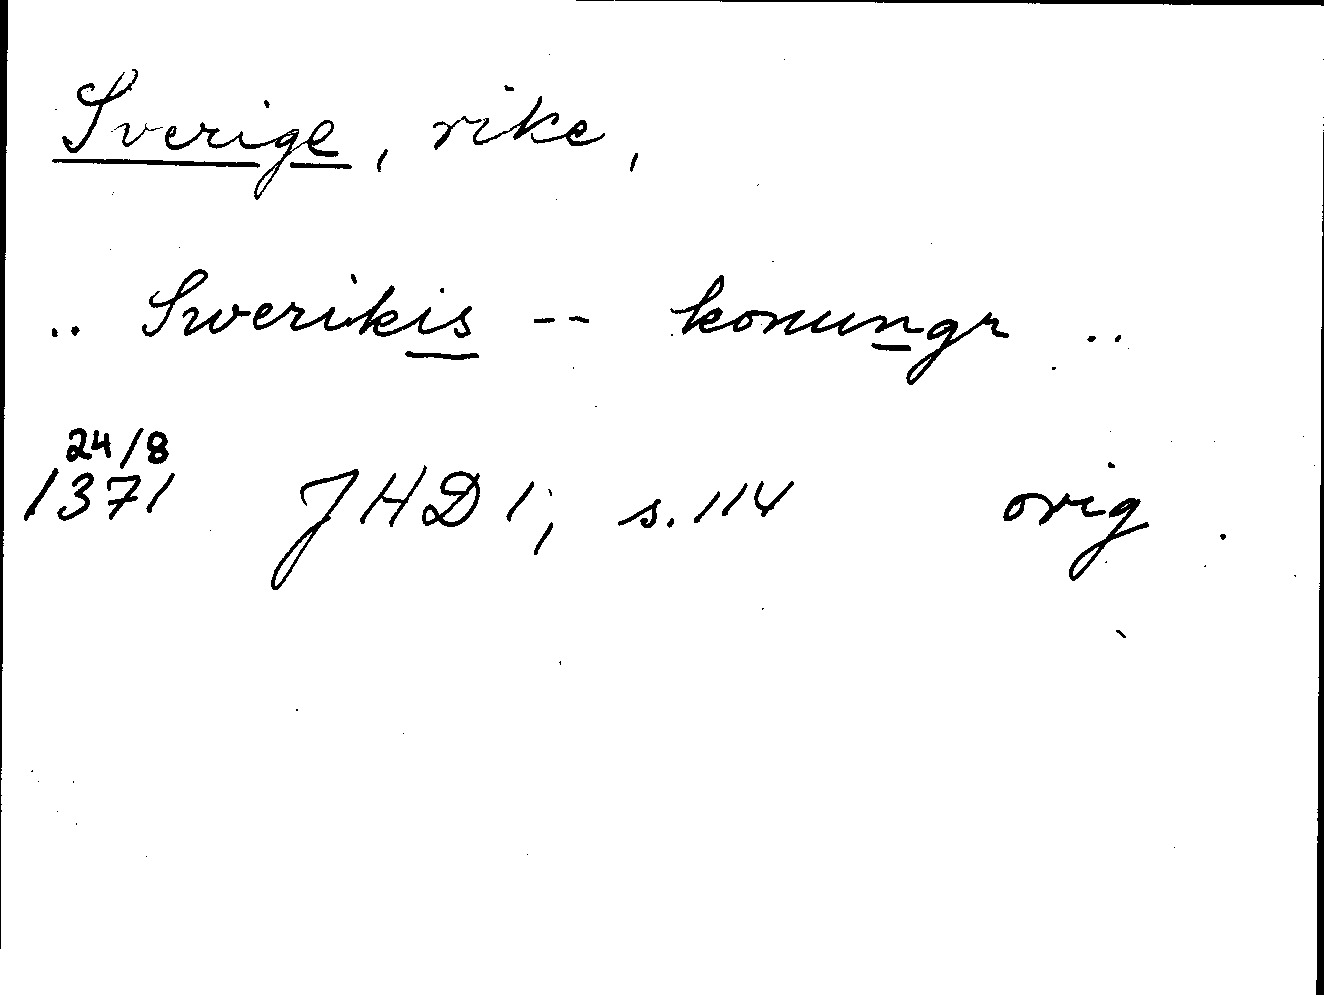 Sverige, rike,
.. Swerikis -- konungr ..
24/8
1371 JHD 1, s. 114 orig.